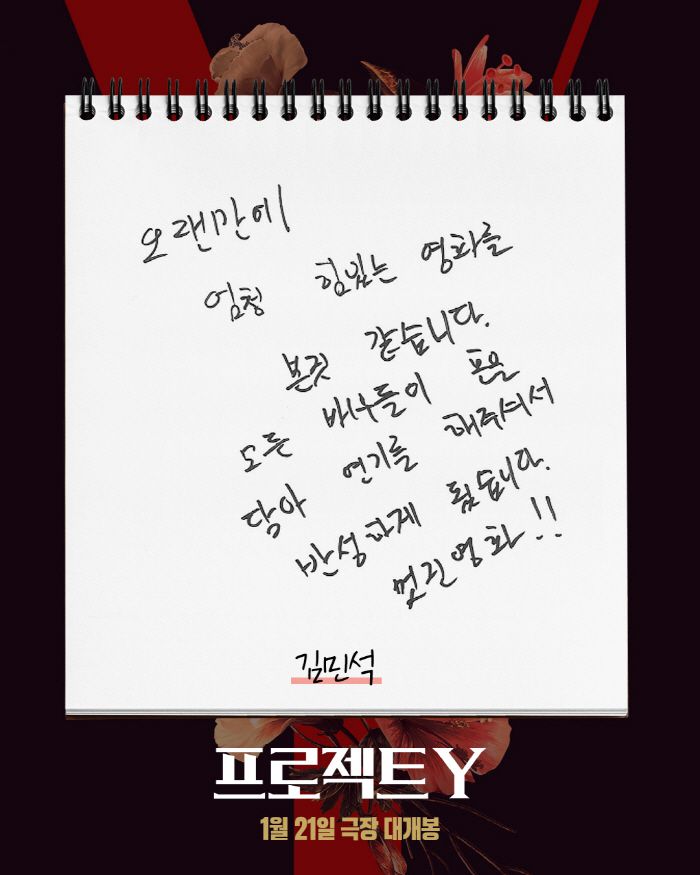 오랜만에
엄청 힘있는 영화를
본것 같습니다.
모든 배우들이 혼을
담아 연기를 해주셔서
반성하게 됐습니다.
멋진영화!!
김민석
프로젝트 Y
1월 21일 극장 대개봉